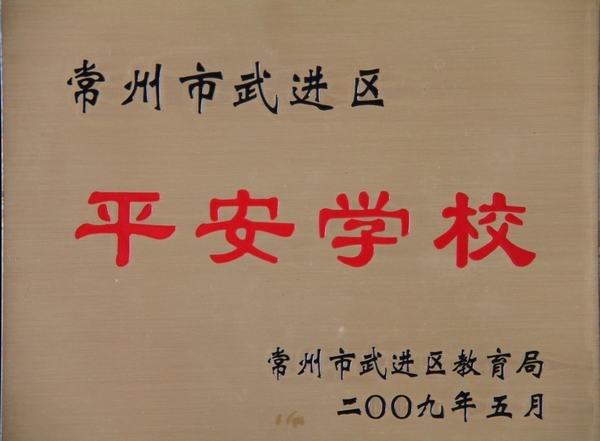 常州市武进区
平安学校
常州市武进区教育局
二〇〇九年五月